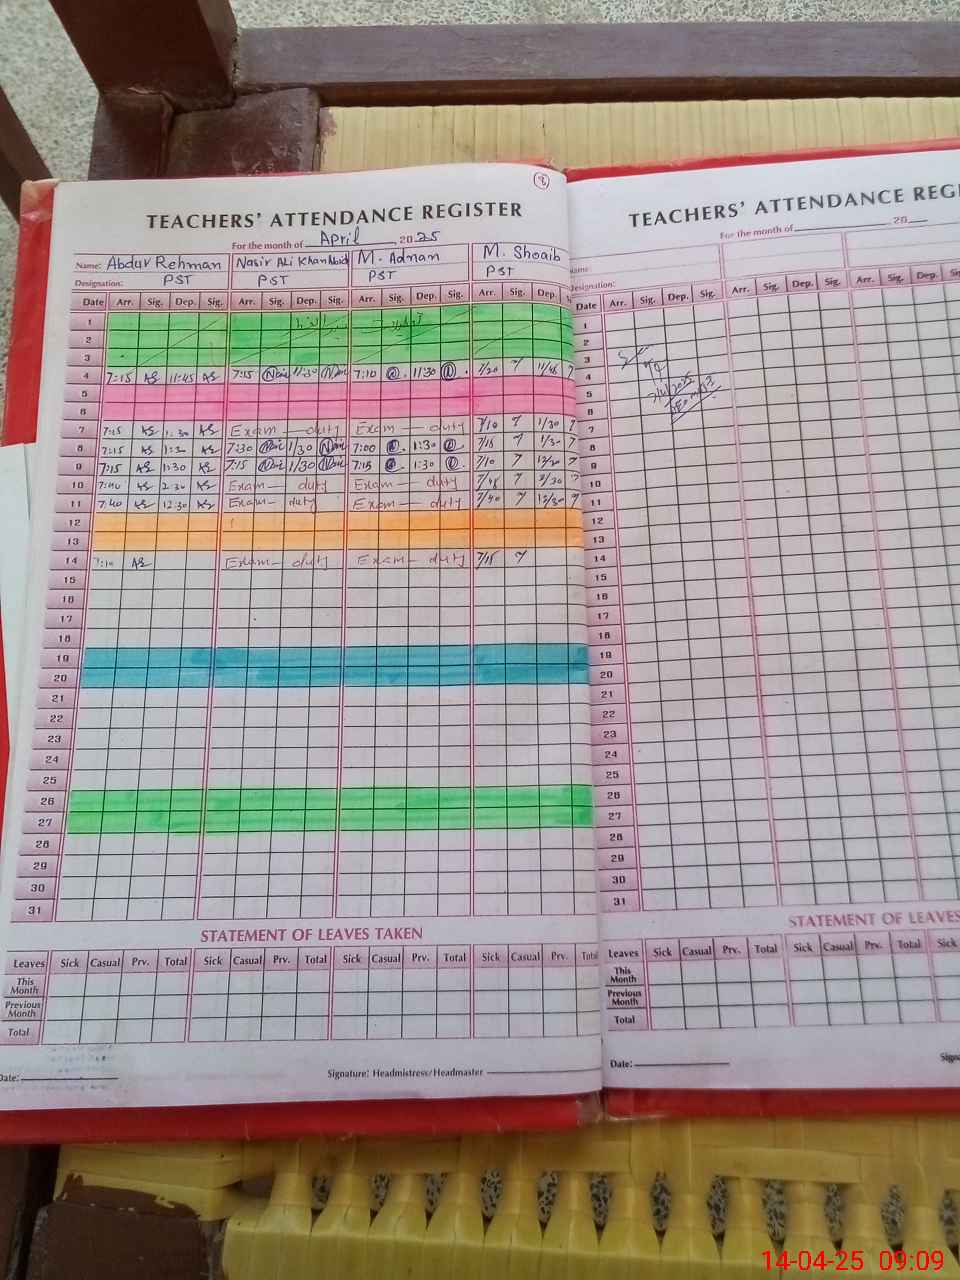 8
TEACHERS' ATTENDANCE REGISTER
For the month of April 2025
Name: Abdur Rehman Nasir Ali Khan Abid M. Adnan M. Shoaib
Designation: PST PST PST PST
Date Arr. Sig. Dep. Sig. Arr. Sig. Dep. Sig. Arr. Sig. Dep. Sig. Arr. Sig. Dep.
1
2
3
4 7:15 11:45 7:15 11:30 7:10 11:30 7/20 11/45
5
6
7 7:15 1:30 Exam duty Exam duty 7/10 1/30
8 7:15 7:30 1/30 7:00 1:30 7/15 1/30
9 7:15 1:30 7:15 1/30 7:15 1:30 7/10 12/30
10 2:30 Exam duty Exam duty 2/30
11 7:40 12:30 Exam duty Exam duty 7/40 12/30
12
13
14 7:10 Exam duty Exam duty 7/15
15
16
17
18
19
20
21
22
23
24
25
26
27
28
29
30
31
STATEMENT OF LEAVES TAKEN
Leaves Sick Casual Prv. Total Sick Casual Prv. Total Sick Casual Prv. Total Sick Casual Prv. Total
This Month
Previous Month
Total
Date:
Signature: Headmistress/Headmaster
TEACHERS' ATTENDANCE REGI
For the month of 20
Name
Designation:
Date Arr. Sig. Dep. Sig. Arr. Sig. Dep. Sig. Arr. Sig.
1
2
3
4
5
6
7
8
9
10
11
12
13
14
15
16
17
18
19
20
21
22
23
24
25
26
27
28
29
30
31
STATEMENT OF LEAVES
Leaves Sick Casual Prv. Total Sick Casual Prv. Total Sick
This Month
Previous Month
Total
Date:
Signa
14-04-25 09:09